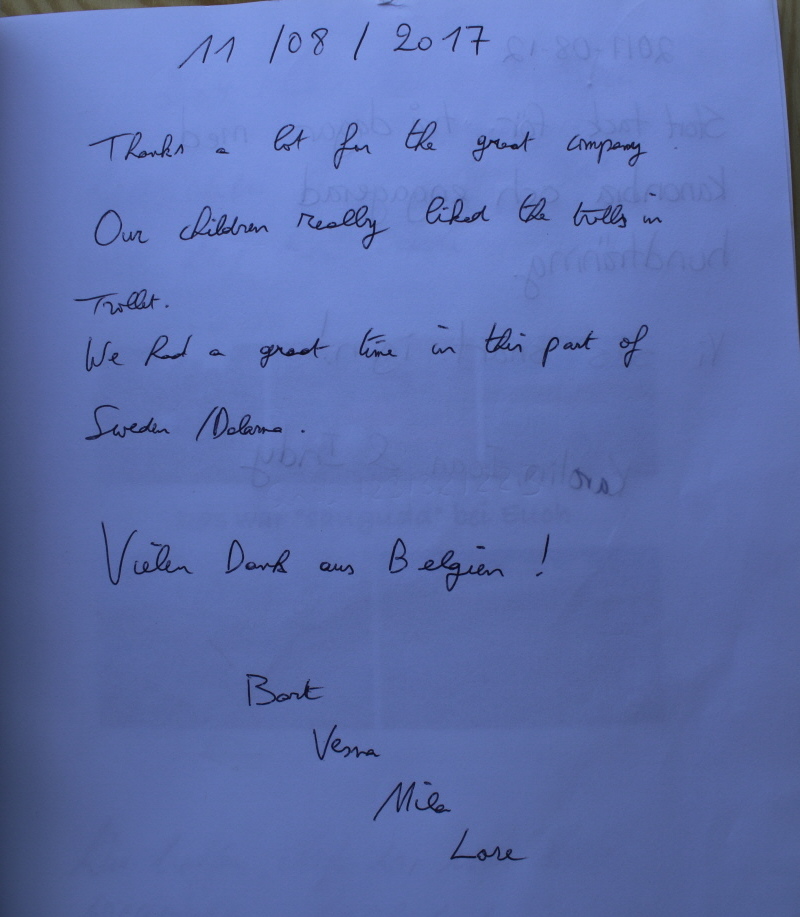 11 / 08 / 2017
Thanks a lot for the great company.
Our children really liked the trolls in
Trollet.
We had a great time in this part of
Sweden / Dalarna.
Vielen Dank aus Belgien !
Bart
Vesna
Mila
Lore